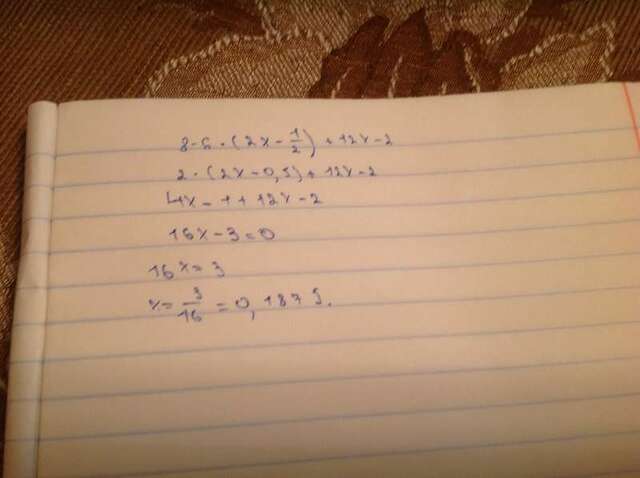 8-6·(2x-1/2)+12x-2
2·(2x-0,5)+12x-2
4x-1+12x-2
16x-3=0
16x=3
x=3/16=0,1875.